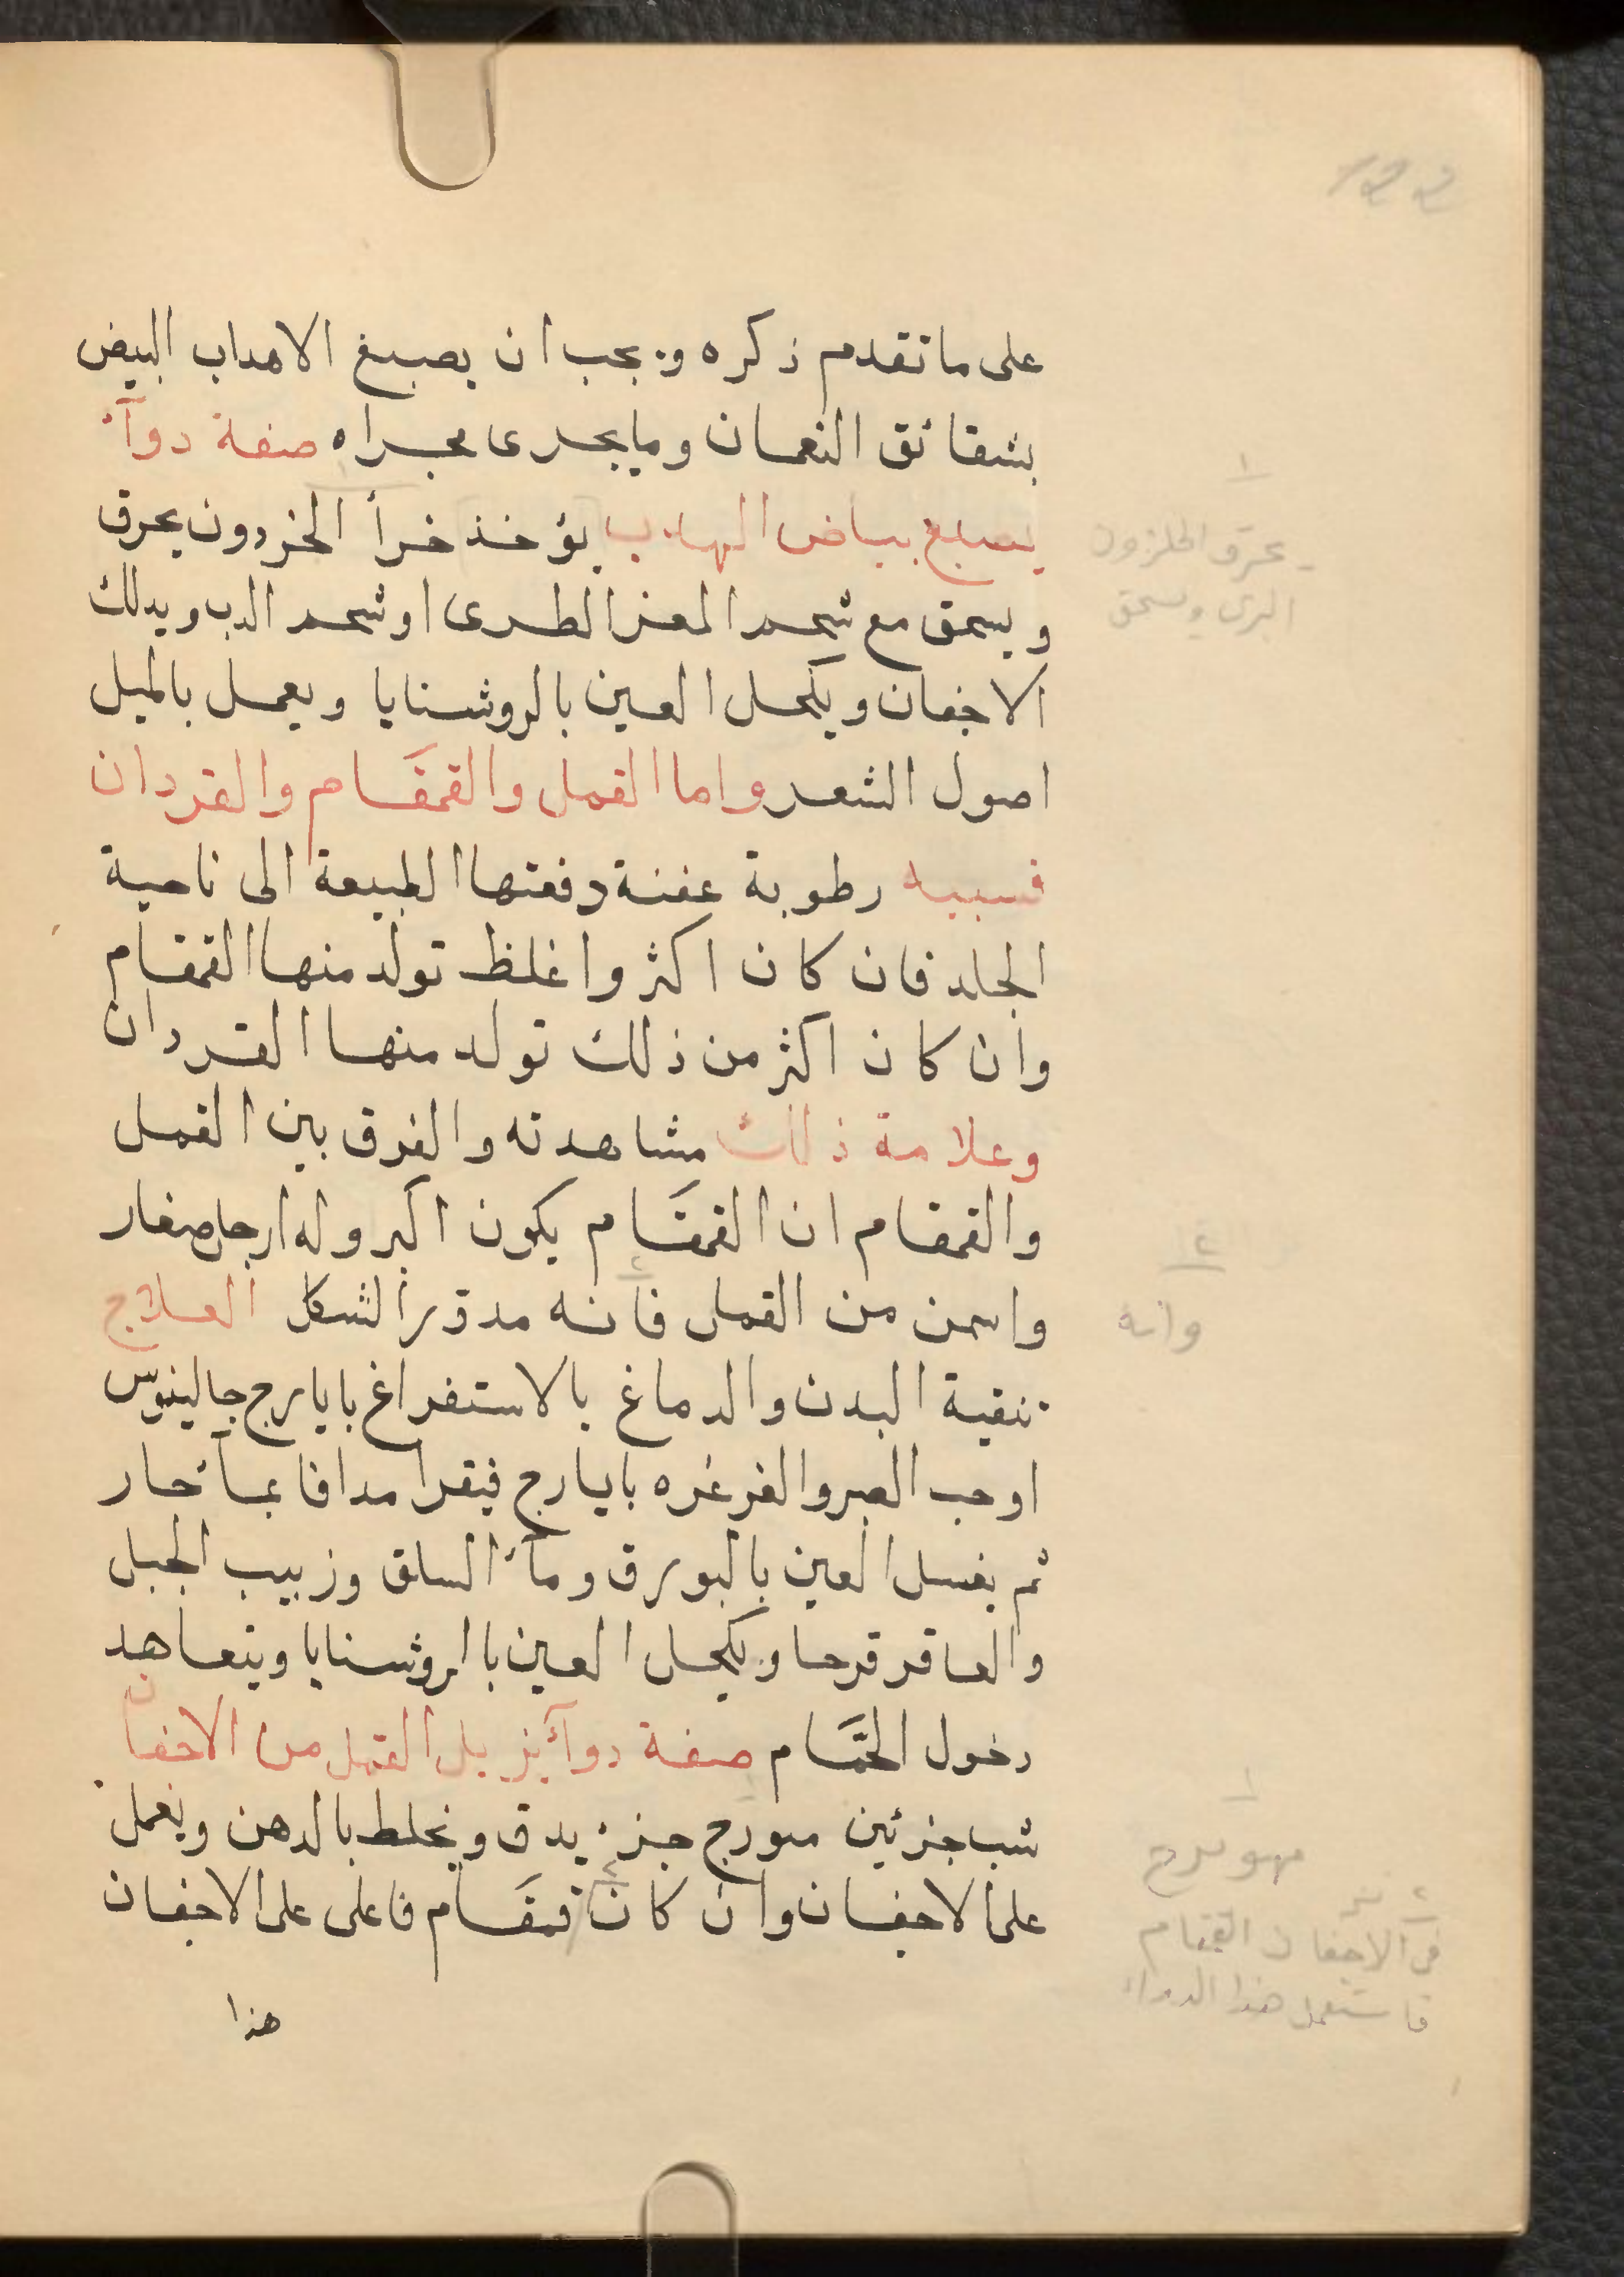 122
على ما تقدم ذكره ويجب ان يصبغ الاهداب البيض
بشقائق النعمان وما يجرى مجراه صفة دوآء
يصبغ بياض الهدب يؤخذ خرأ الحردون يحرق
ويسحق مع شحم المعز الطرى او شحم الدب ويدلك
الاجفان ويكحل العين بالروشنايا ويعمل بالميل
اصول الشعر واما القمل والقمقام والقردان
فسببه رطوبة عفنة دفعتها الطبيعة الى ناحية
الجلد فان كان اكثر واغلظ تولد منها القمقام
وان كان اكثر من ذلك تولد منها القردان
وعلامة ذلك مشاهدته والفرق بين القمل
والقمقام ان القمقَام يكون اكبر وله ارجل صغار
واسمن من القمل فانه مدوّر الشكل العلاج
تنقية البدن والدماغ بالاستفراغ بايارج جالينوس
اوحب الصبر والغرغره بايارج فيقرا مدافا بمآء حار
ثم يغسل العين بالبورق ومآء السلق وزبيب الجبل
والعاقر قرحا ويكحل العين بالروشنايا ويتعاهد
دخول الحمَّام صفة دوآء يزيل القمل من الاجفان
شب جزئين ميورج جزء يدق ويخلط بالدهن ويعمل
على الاجفان وان كان قمقَام فاعلى على الاجفان
هذا
١
يحرق الحلزون
البرى ويسحق
٢
وانه
١
ميويزج
٢
فى الاجفان القمقام
فاستعمل هذا الدواء